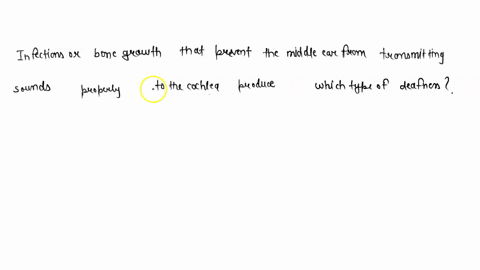 Infections or bone growth that prevent the middle ear from transmitting
sounds properly .to the cochlea produce which type of deafness?.